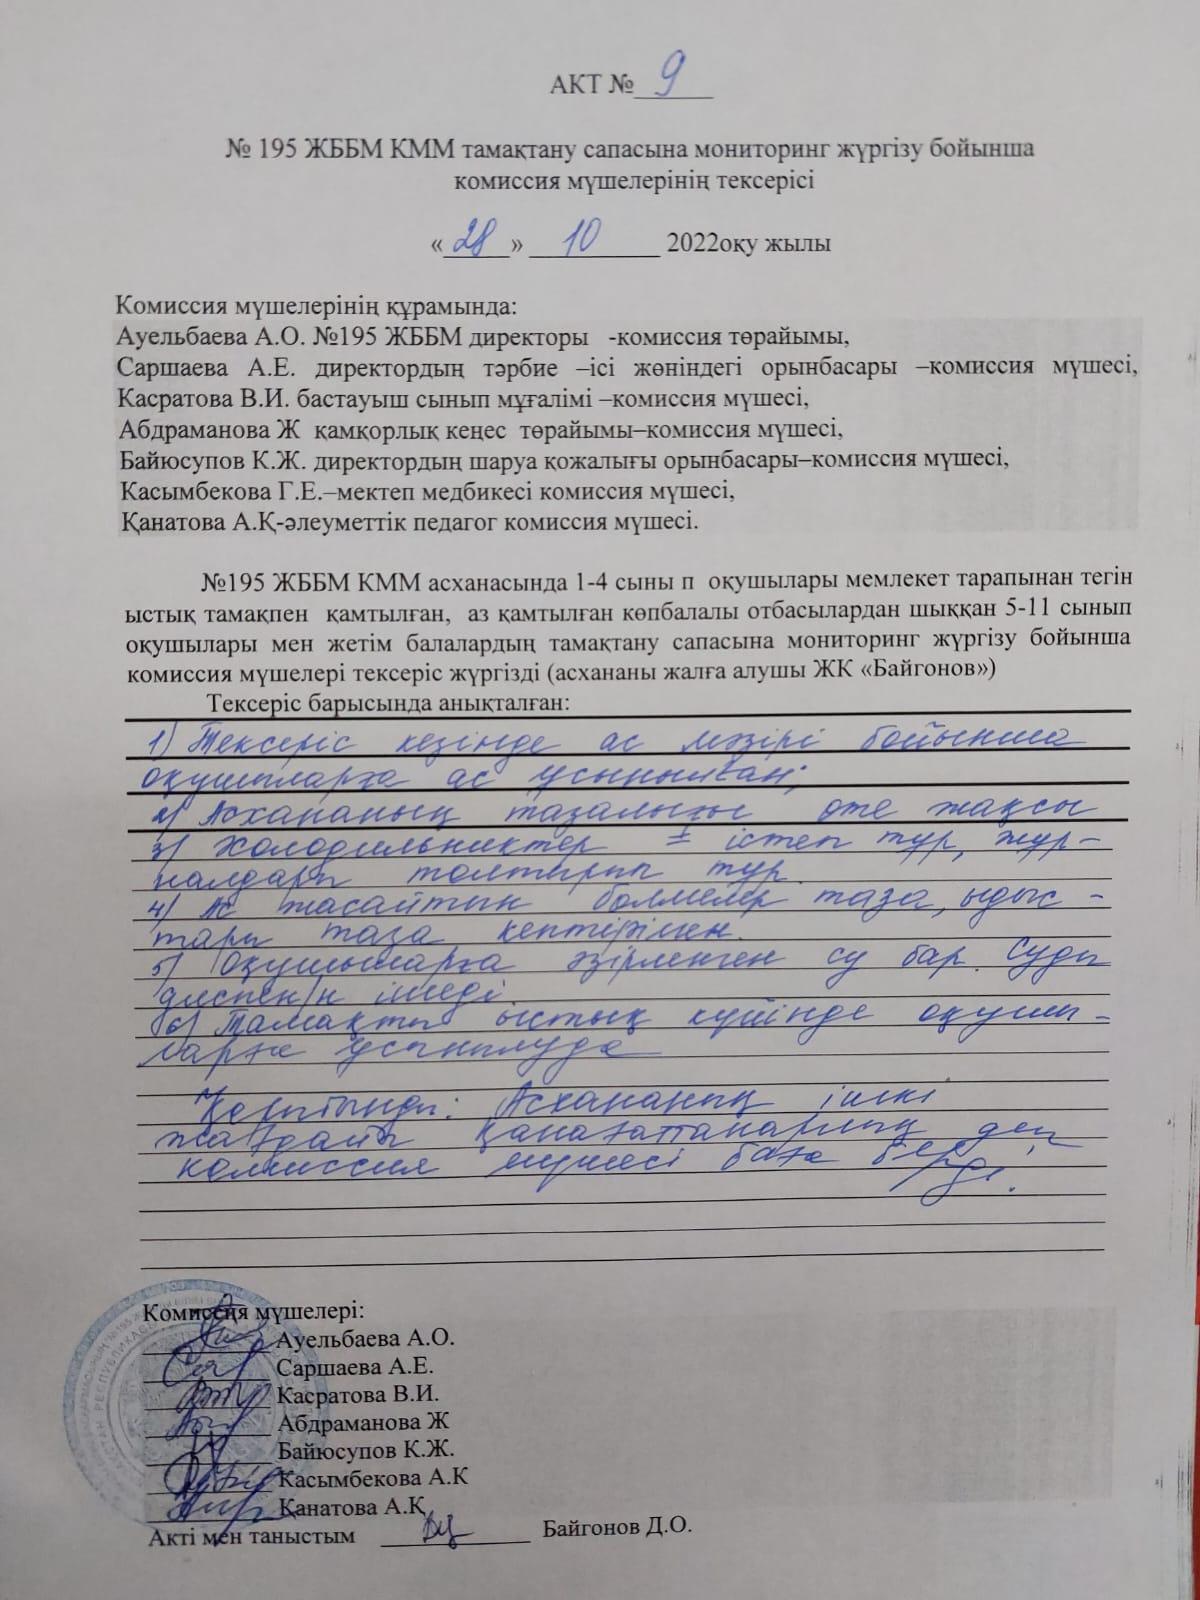 АКТ № 9
№ 195 ЖББМ КММ тамақтану сапасына мониторинг жүргізу бойынша
комиссия мүшелерінің тексерісі
« 28 » 10 2022оқу жылы
Комиссия мүшелерінің құрамында:
Ауельбаева А.О. №195 ЖББМ директоры -комиссия төрайымы,
Саршаева А.Е. директордың тәрбие –ісі жөніндегі орынбасары –комиссия мүшесі,
Касратова В.И. бастауыш сынып мұғалімі –комиссия мүшесі,
Абдраманова Ж қамқорлық кеңес төрайымы–комиссия мүшесі,
Байюсупов К.Ж. директордың шаруа қожалығы орынбасары–комиссия мүшесі,
Касымбекова Г.Е.–мектеп медбикесі комиссия мүшесі,
Қанатова А.Қ-әлеуметтік педагог комиссия мүшесі.
№195 ЖББМ КММ асханасында 1-4 сыны п оқушылары мемлекет тарапынан тегін
ыстық тамақпен қамтылған, аз қамтылған көпбалалы отбасылардан шыққан 5-11 сынып
оқушылары мен жетім балалардың тамақтану сапасына мониторинг жүргізу бойынша
комиссия мүшелері тексеріс жүргізді (асхананы жалға алушы ЖК «Байгонов»)
Тексеріс барысында анықталған:
1) Тексеріс кезінде ас мәзірі бойынша
оқушыларға ас ұсынылған;
2) Асхананың тазалығы өте жақсы
3) Холодильниктер ± істеп тұр, жур-
налдары толтырып тұр.
4) Ас жасайтын бөлмелер таза, ыдыс-
тары таза кептірілген.
5) Оқушыларға әзірленген су бар. Суды
ішеді.
6) Тамақты ыстық күйінде оқушы-
ларға ұсынылуда
Қорытынды: Асхананың ішкі
жағдайы қанағаттанарлық деп
комиссия мүшесі баға берді.
Комиссия мүшелері:
Ауельбаева А.О.
Саршаева А.Е.
Касратова В.И.
Абдраманова Ж
Байюсупов К.Ж.
Касымбекова А.К
Қанатова А.Қ
Акті мен таныстым Байгонов Д.О.